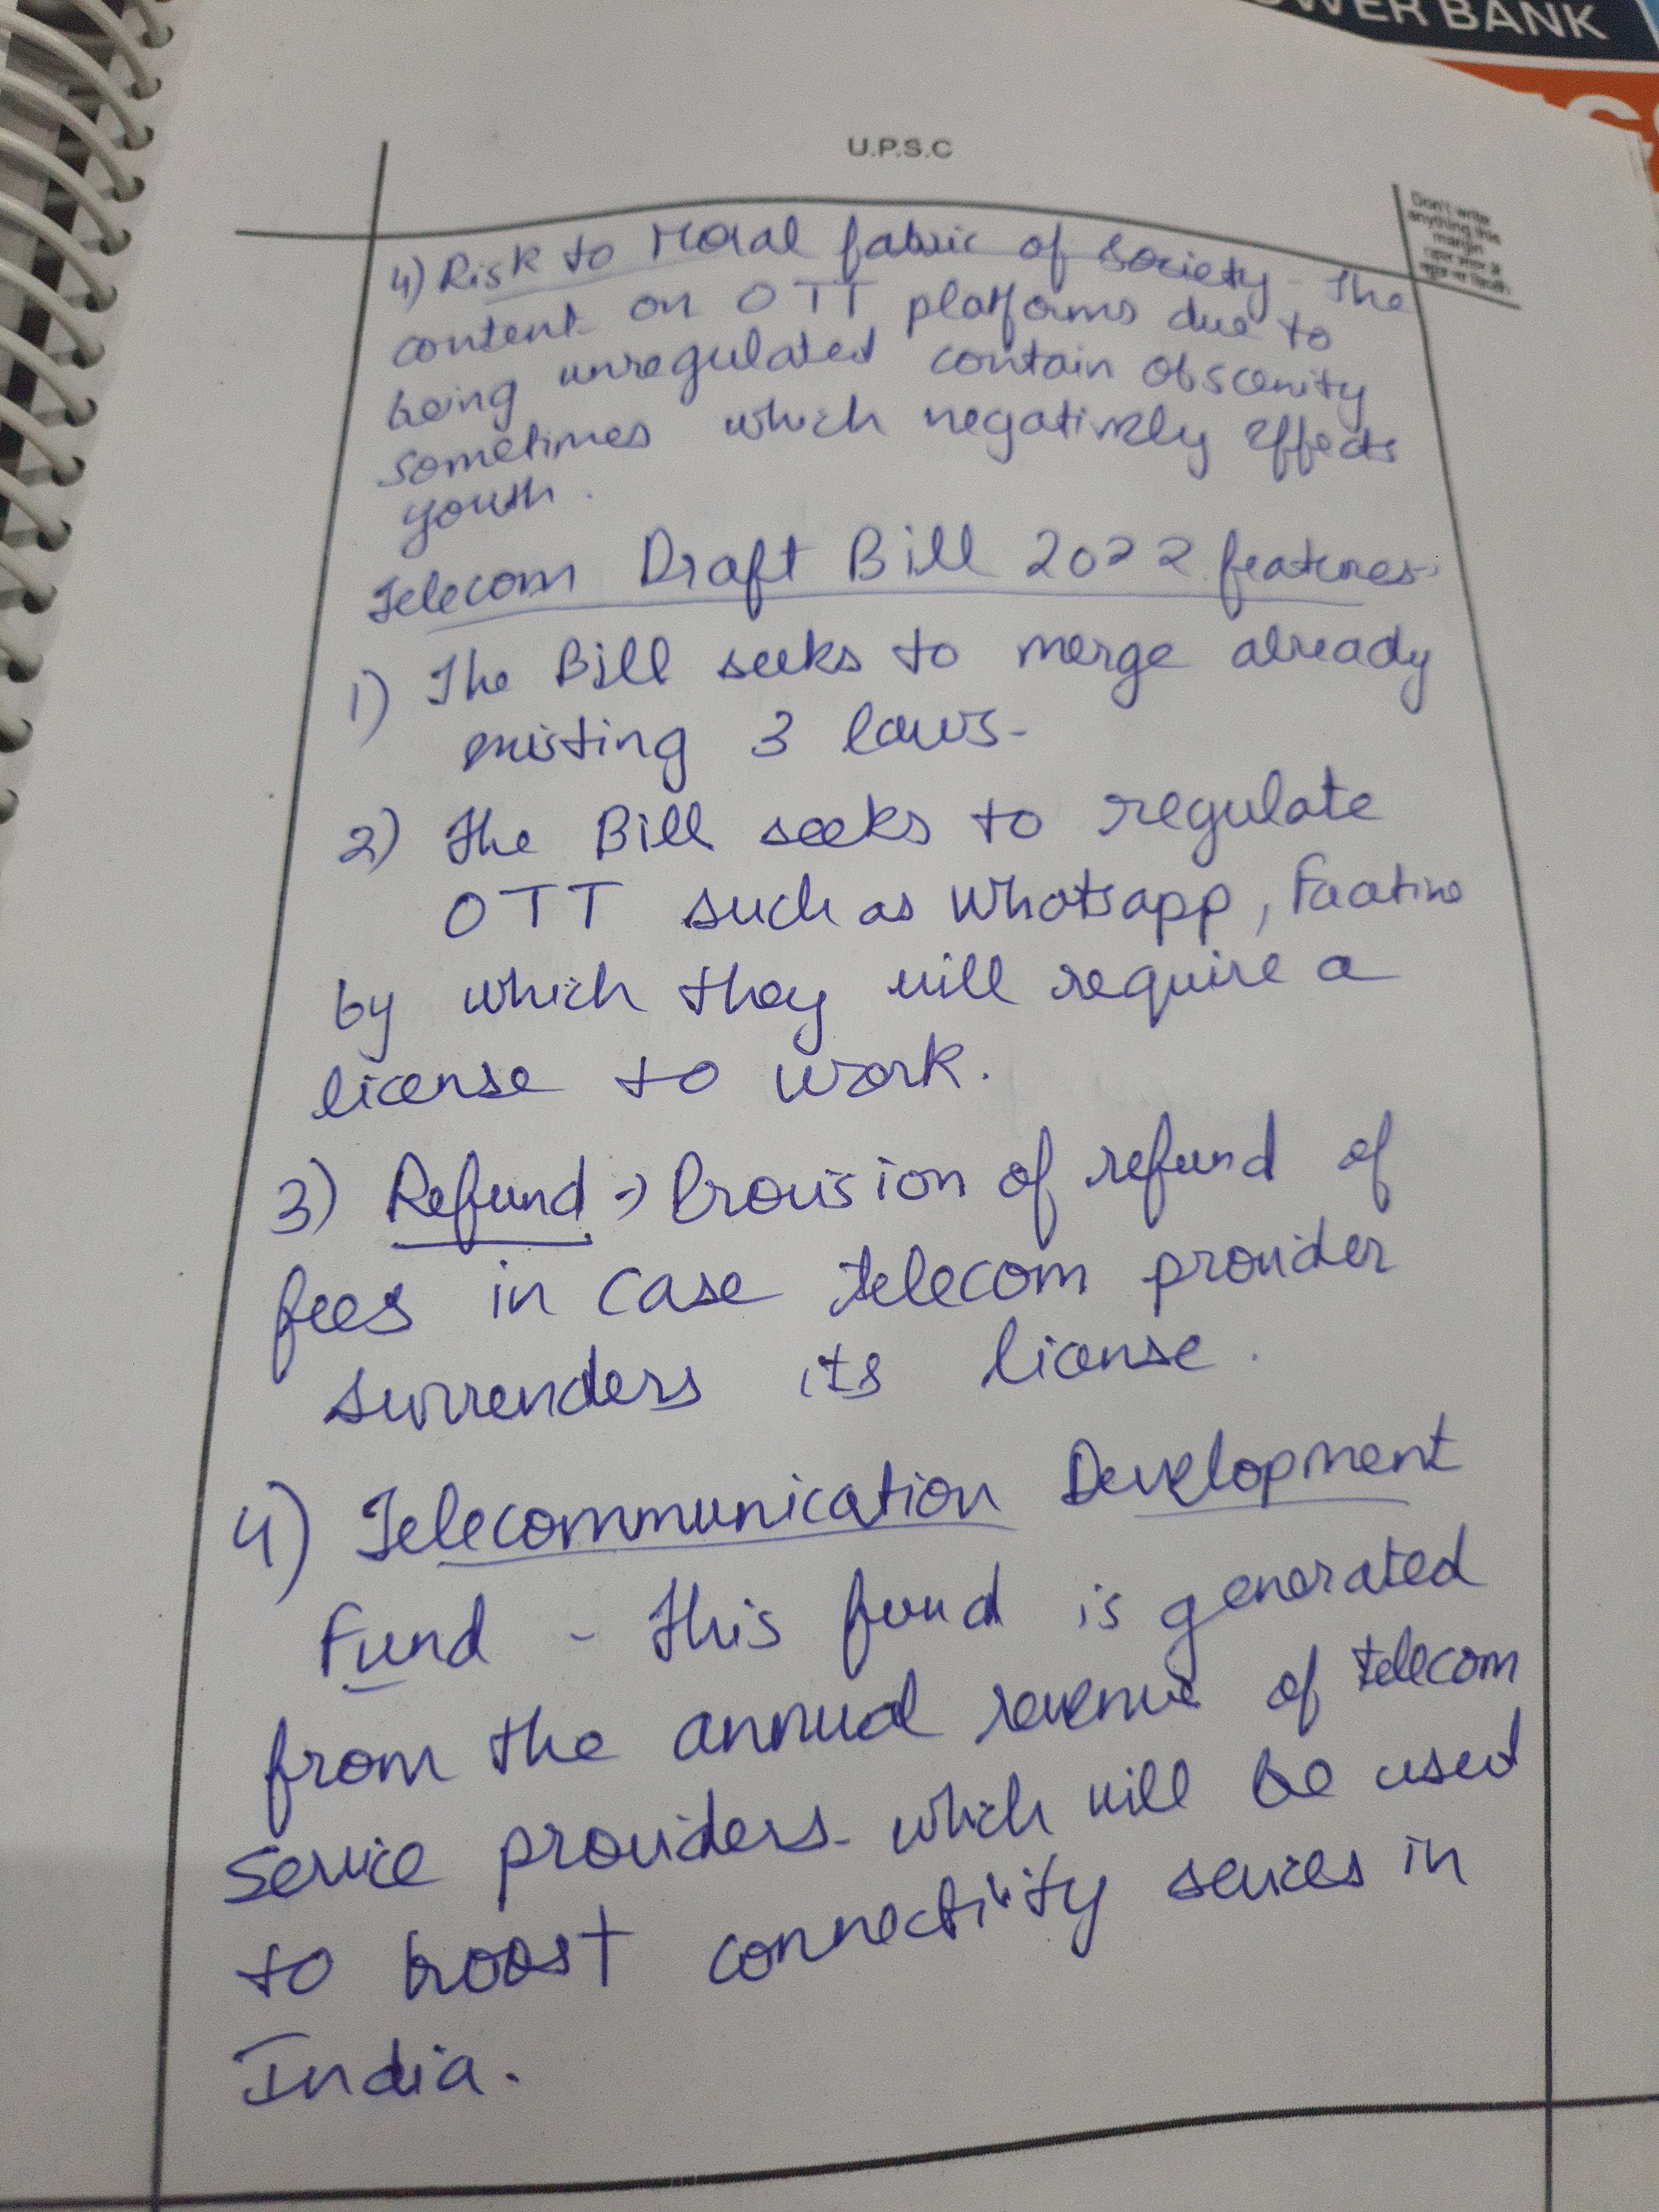 OWER BANK
U.P.S.C
Don't write
anything this
margin
4) Risk to Moral fabric of society - The
content on OTT platforms due to
being unregulated contain obscenity
sometimes which negatively effects
youth.
Telecom Draft Bill 2022 features.
1) The Bill seeks to merge already
existing 3 laws-
2) The Bill seeks to regulate
OTT such as Whatsapp,
by which they will require a
license to work.
3) Refund → Provision of refund of
fees in case telecom provider
surrenders its license.
4) Telecommunication Development
Fund - This fund is generated
from the annual revenue of telecom
service providers. which will be used
to boost connectivity services in
India.